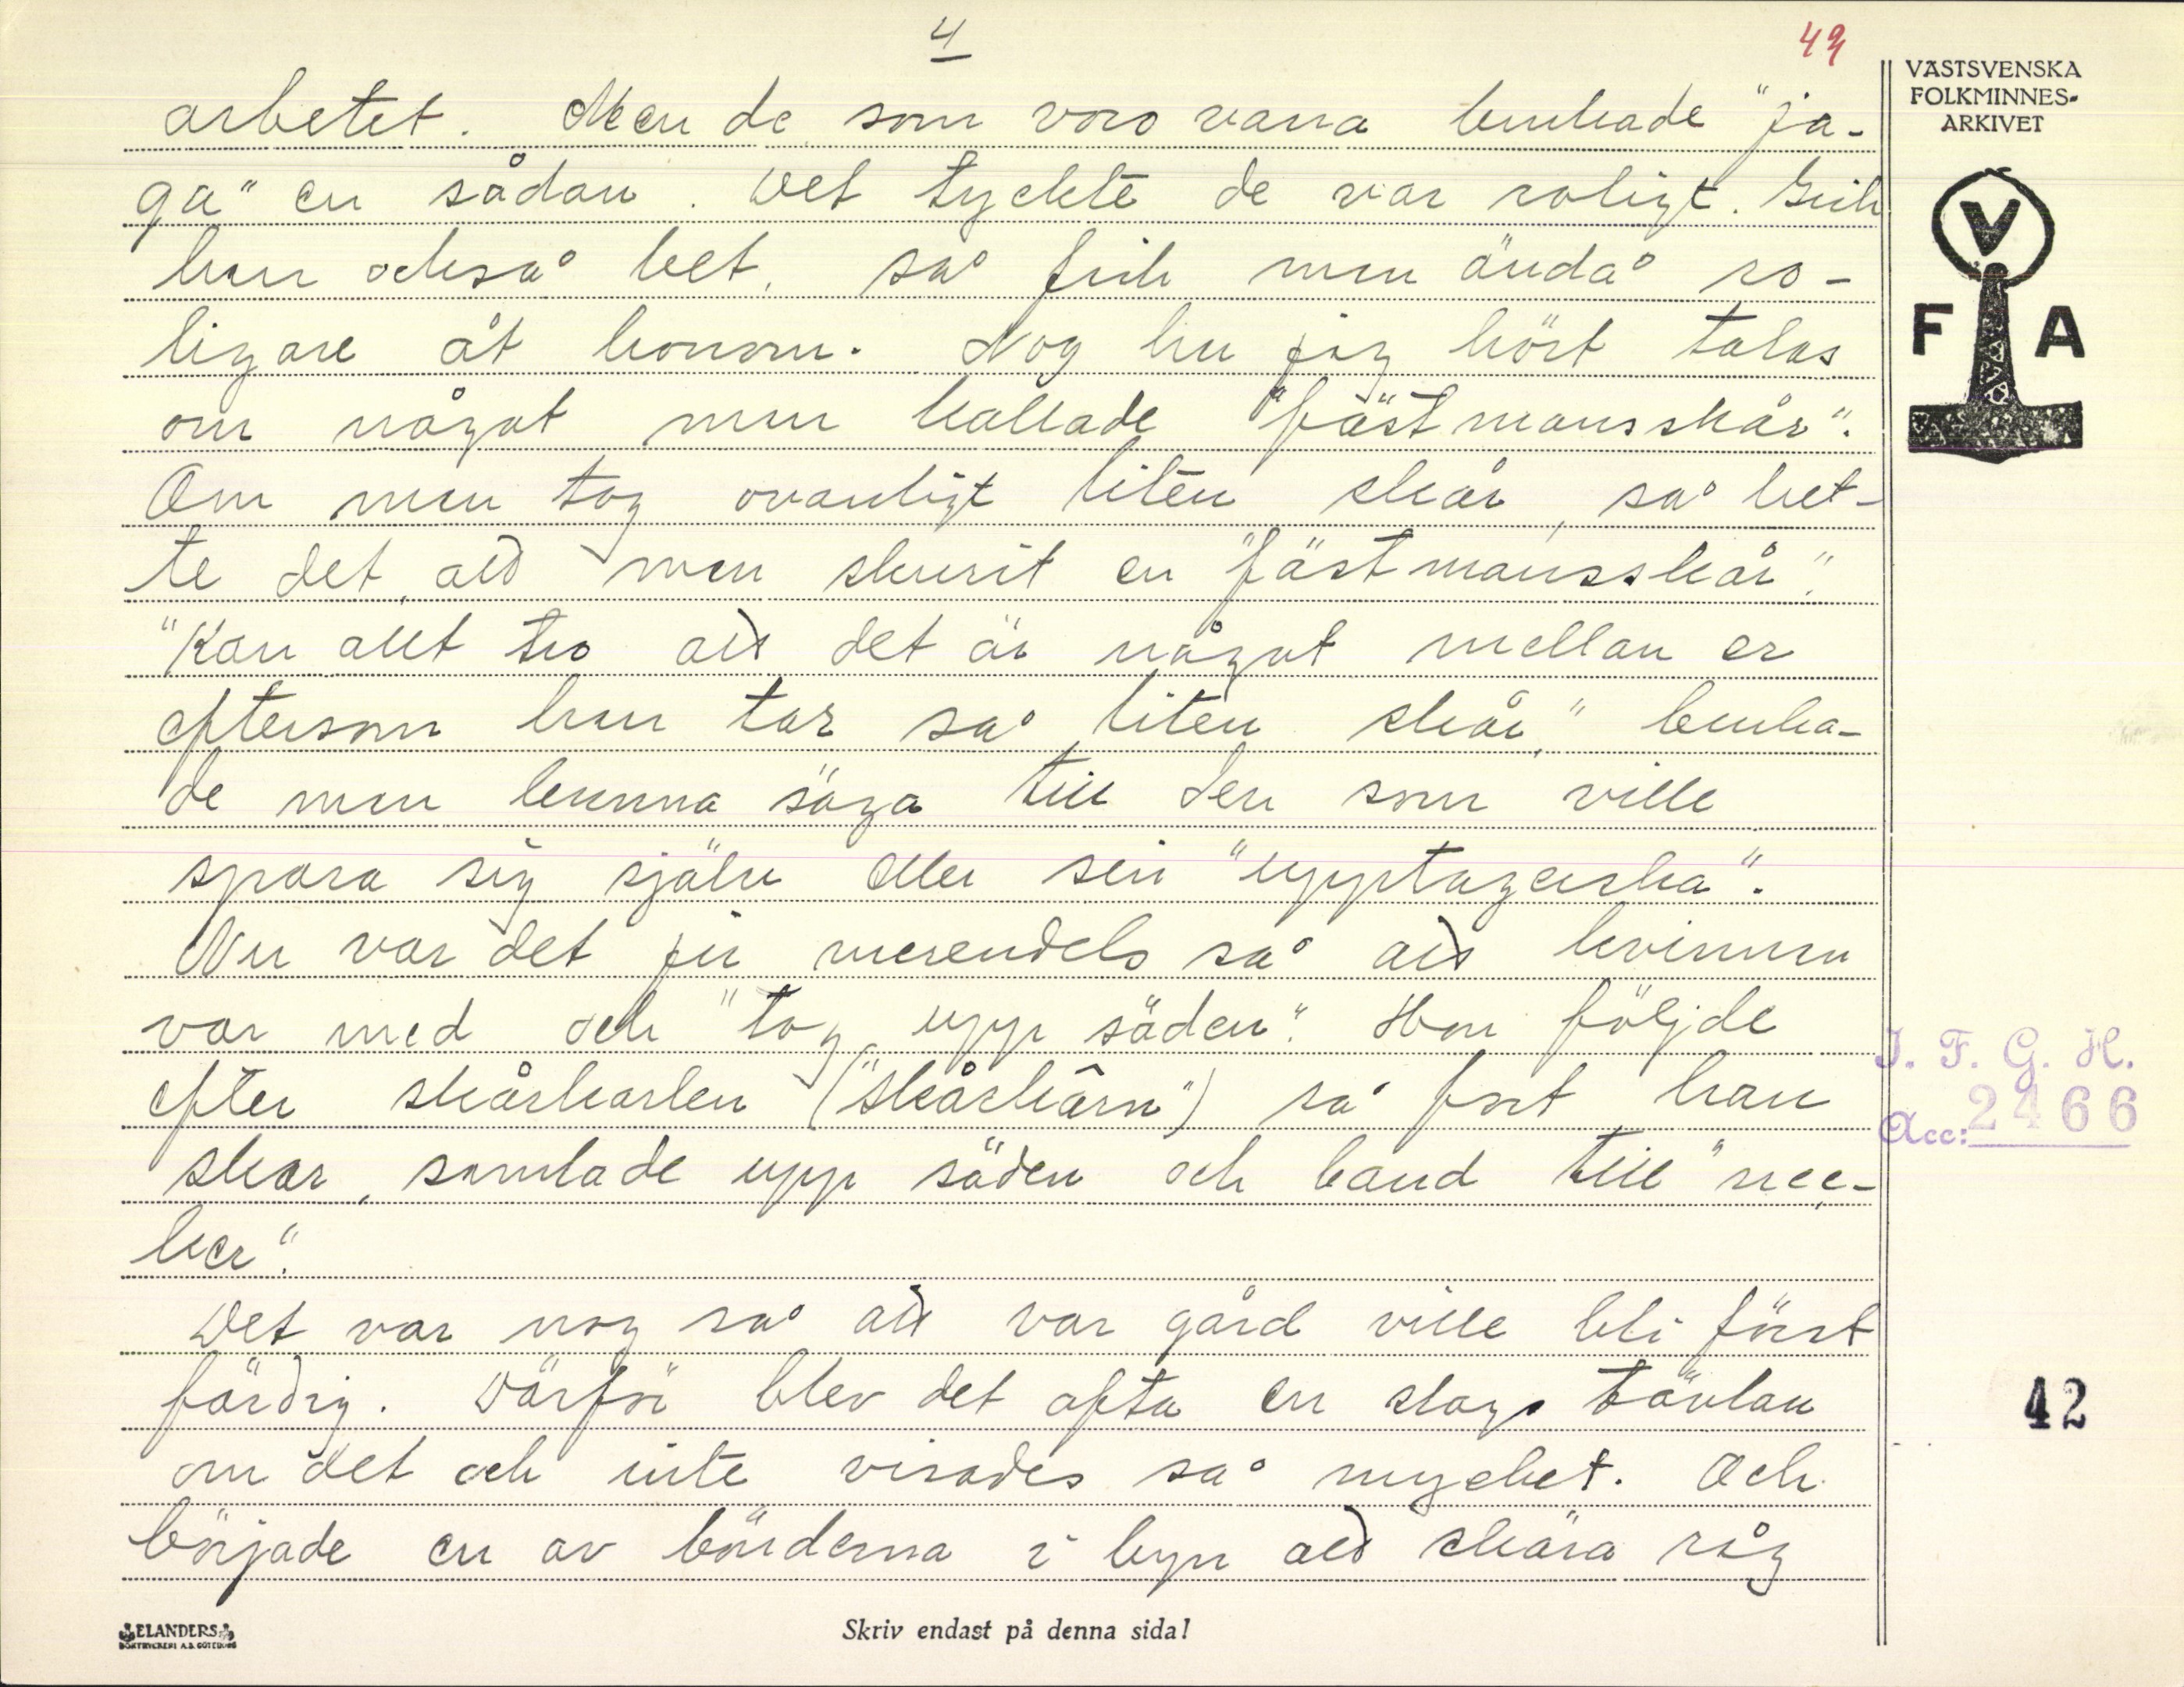 4
42
arbetet. Men de som voro vana brukade "ja-
ga" en sådan. Det tyckte de var roligt. Gick
han också bet, så fick man ändå ro-
ligare åt honom. Nog har jag hört talas
om något man kallade "fästmansskår".
Om man tog ovanligt liten skår, så het-
te det att man skurit en "fästmansskår".
"Kan allt tro att det är något mellan er
eftersom han tar så liten skår," bruka-
de man kunna säga till den som ville
spara sig själv eller sin "upptagerska".
Nu var det ju merendels så att kvinnan
var med och "tog upp säden". Hon följde
efter skårkarlen ("skårkârn") så fort han
skar, samlade upp säden och band till "nee-
ker".
Det var nog så att var gård ville bli först
färdig. Därför blev det ofta en slags tävlan
om det och inte visades så mycket. Och
började en av bönderna i byn att skära råg
VÄSTSVENSKA
FOLKMINNES-
ARKIVET
V
F A
I. F. G. H.
Acc: 2466
42
ELANDERS
BOKTRYCKERI A.B. GÖTEBORG
Skriv endast på denna sida!